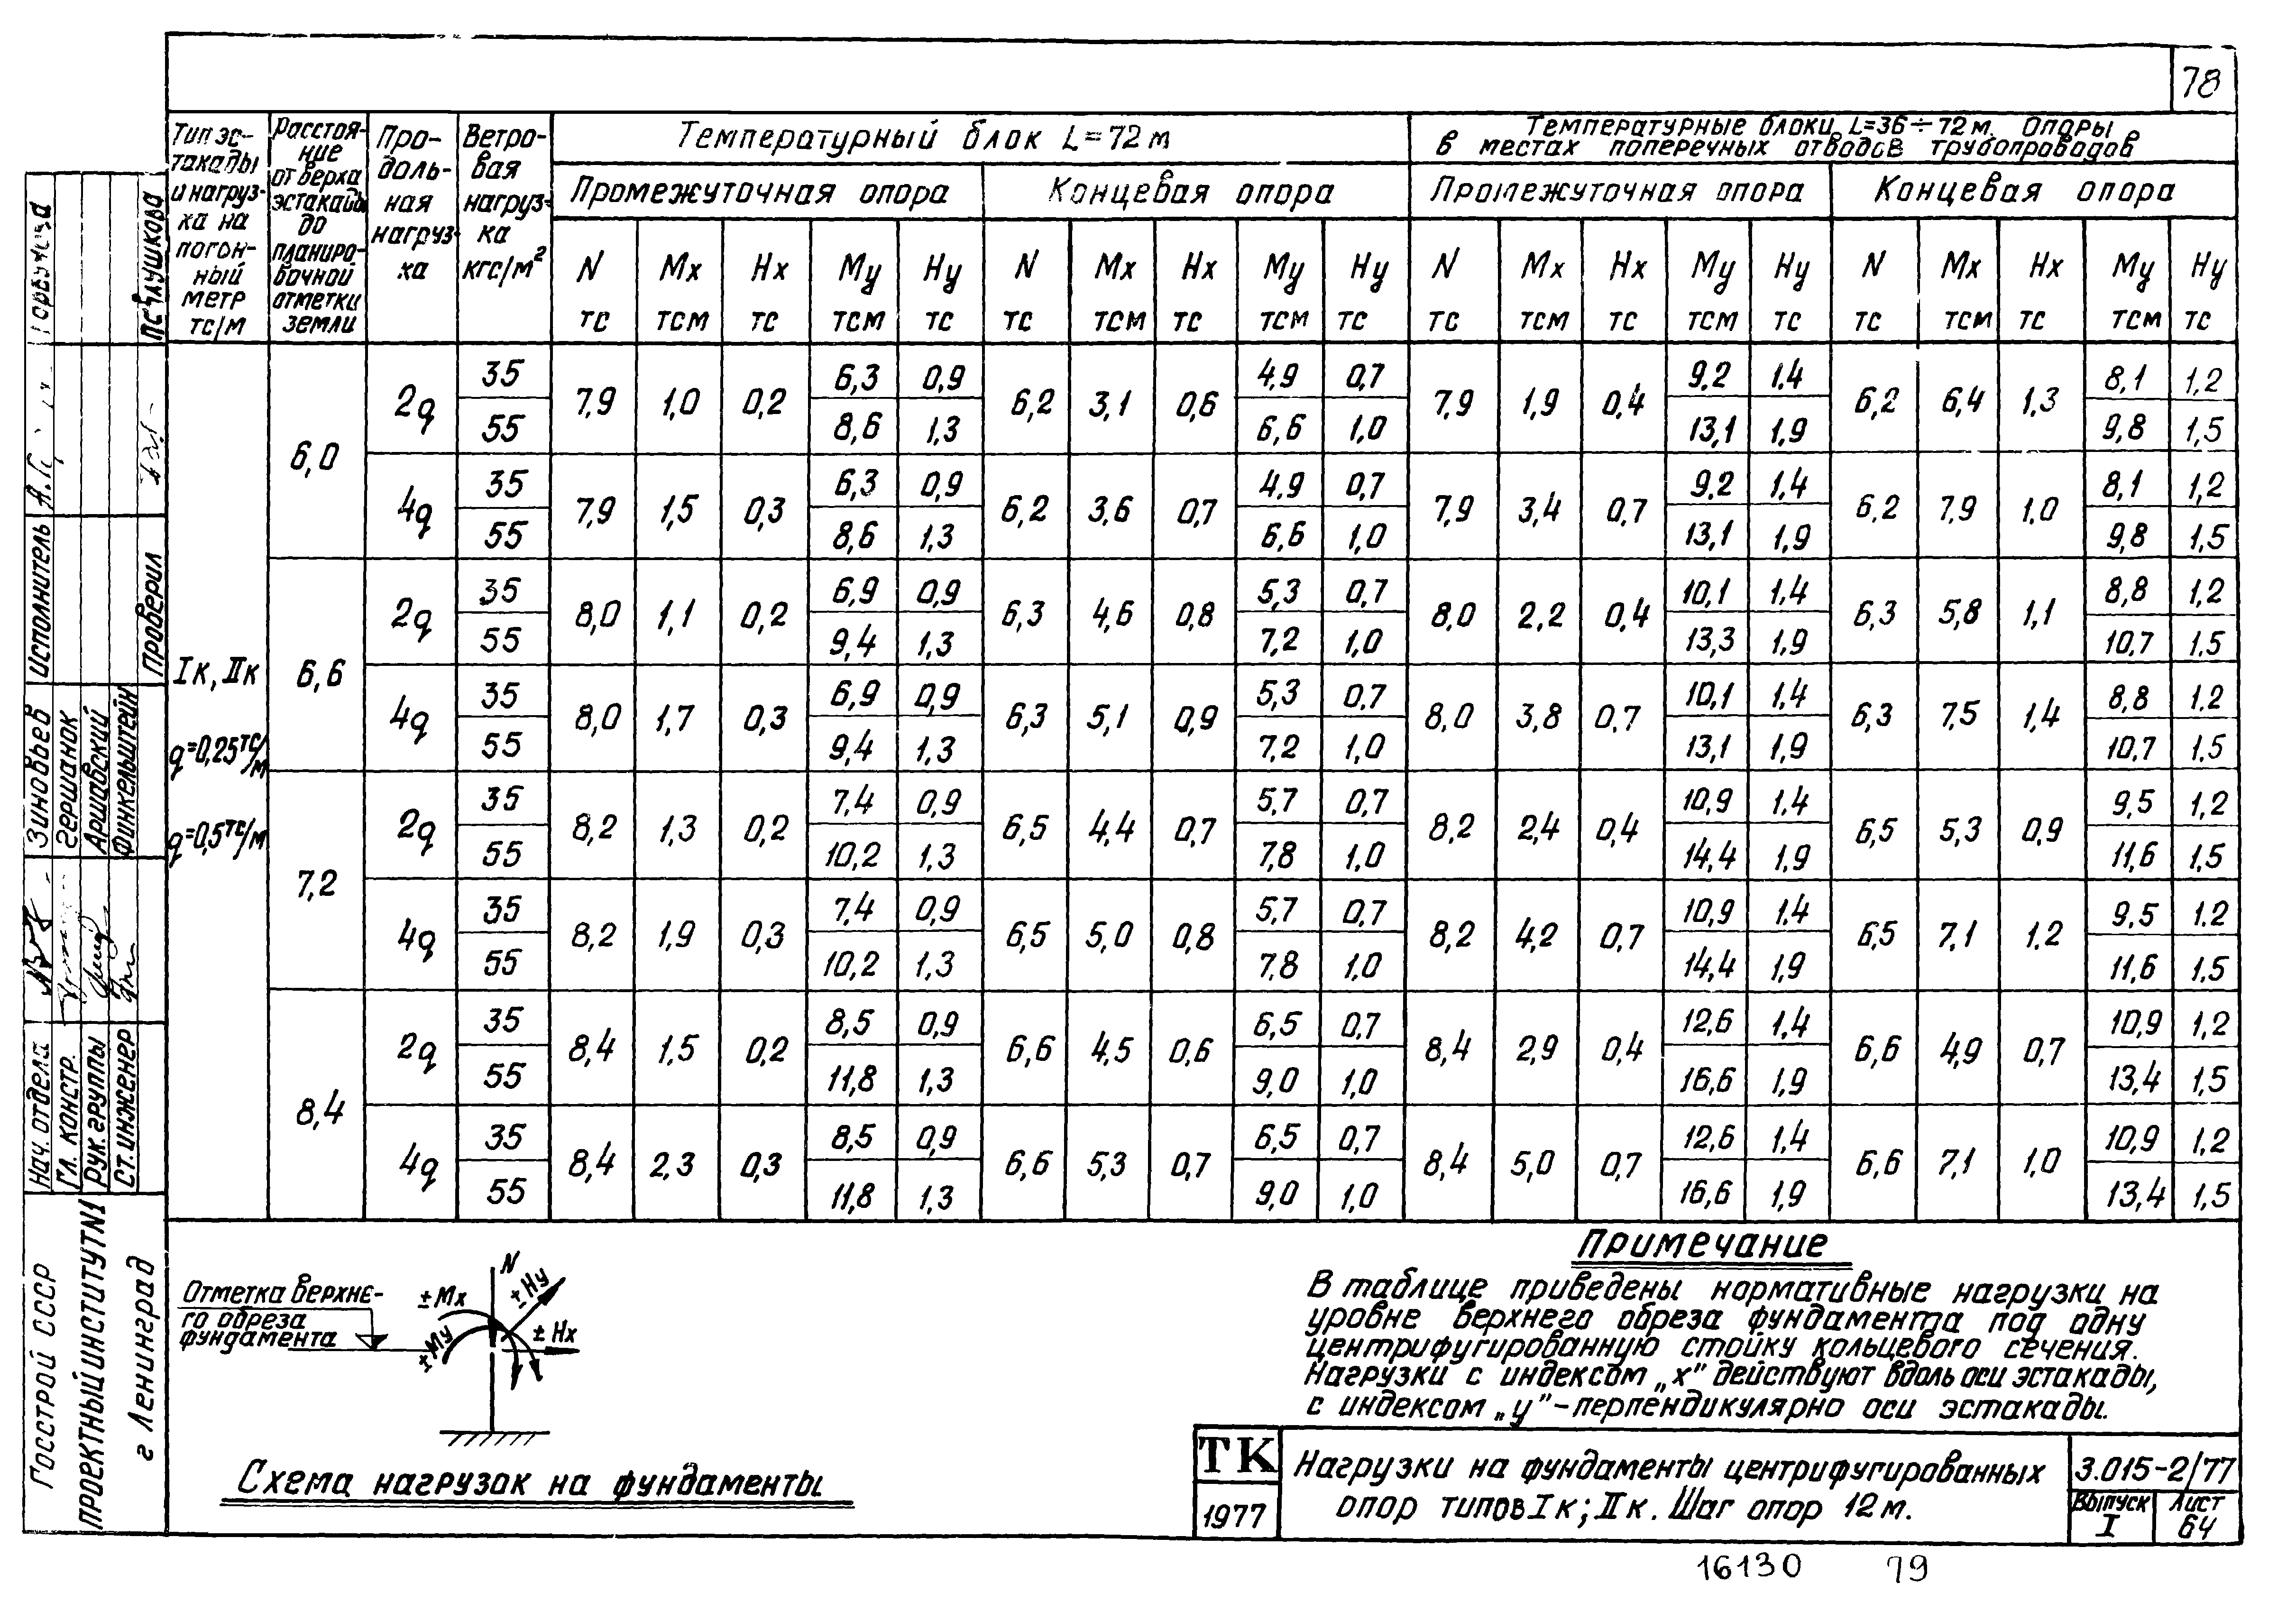 78
Тип эс-
такады
и нагруз-
ка на
погон-
ный
метр
тс/м
Расстоя-
ние
от верха
эстакады
до
планиро-
вочной
отметки
земли
Про-
доль-
ная
нагруз-
ка
Ветро-
вая
нагруз-
ка
кгс/м²
Температурный блок L=72м
Температурные блоки L=36÷72м. Опоры
в местах поперечных отводов трубопроводов
Промежуточная опора Концевая опора Промежуточная опора Концевая опора
N Mx Hx My Hy N Mx Hx My Hy N Mx Hx My Hy N Mx Hx My Hy
тс тсм тс тсм тс тс тсм тс тсм тс тс тсм тс тсм тс тс тсм тс тсм тс
Iк, IIк
q=0,25тс/м
q=0,5тс/м
6,0
2q 35 7,9 1,0 0,2 6,3 0,9 6,2 3,1 0,6 4,9 0,7 7,9 1,9 0,4 9,2 1.4 6,2 6,4 1,3 8,1 1,2
55 8,6 1,3 6,6 1,0 13,1 1,9 9,8 1,5
4q 35 7,9 1,5 0,3 6,3 0,9 6,2 3,6 0,7 4,9 0,7 7,9 3,4 0,7 9,2 1,4 6,2 7,9 1.0 8,1 1,2
55 8,6 1,3 6,6 1,0 13,1 1,9 9,8 1,5
6,6
2q 35 8,0 1,1 0,2 6,9 0,9 6,3 4,6 0,8 5,3 0,7 8,0 2,2 0,4 10,1 1,4 6,3 5,8 1,1 8,8 1,2
55 9,4 1,3 7,2 1,0 13,3 1,9 10,7 1.5
4q 35 8,0 1.7 0,3 6,9 0,9 6,3 5,1 0,9 5,3 0,7 8,0 3,8 0,7 10,1 1.4 6,3 7,5 1,4 8,8 1.2
55 9,4 1,3 7,2 1,0 13,1 1,9 10,7 1,5
7,2
2q 35 8,2 1,3 0,2 7,4 0,9 6,5 4,4 0,7 5,7 0,7 8,2 2,4 0,4 10,9 1.4 6,5 5,3 0,9 9,5 1,2
55 10,2 1,3 7,8 1,0 14,4 1,9 11,6 1,5
4q 35 8,2 1,9 0,3 7,4 0,9 6,5 5,0 0,8 5,7 0,7 8,2 4,2 0,7 10,9 1.4 6,5 7,1 1.2 9,5 1.2
55 10,2 1,3 7,8 1,0 14,4 1,9 11,6 1,5
8,4
2q 35 8,4 1,5 0,2 8,5 0,9 6,6 4,5 0,6 6,5 0,7 8,4 2,9 0,4 12,6 1,4 6,6 4,9 0,7 10,9 1,2
55 11,8 1,3 9,0 1,0 16,6 1,9 13,4 1,5
4q 35 8,4 2,3 0,3 8,5 0,9 6,6 5,3 0,7 6,5 0,7 8,4 5,0 0,7 12,6 1,4 6,6 7,1 1,0 10,9 1,2
55 11,8 1,3 9,0 1,0 16,6 1,9 13,4 1,5
Отметка верхне-
го обреза
фундамента
N
±Mx
±Hy
±My
±Hx
Схема нагрузок на фундаменты
Примечание
В таблице приведены нормативные нагрузки на
уровне верхнего обреза фундамента под одну
центрифугированную стойку кольцевого сечения.
Нагрузки с индексом „х” действуют вдоль оси эстакады,
с индексом „у”-перпендикулярно оси эстакады.
ТК
1977
Нагрузки на фундаменты центрифугированных
опор типов Iк; IIк. Шаг опор 12м.
3.015-2/77
Выпуск
I
Лист
64
16130 79
Госстрой СССР
Проектный институт N1
г Ленинград
Нач. отдела Зиновьев
Гл. констр. Гершанок
Рук. группы Аршавский
Ст. инженер Финкельштейн
Исполнитель
Проверил